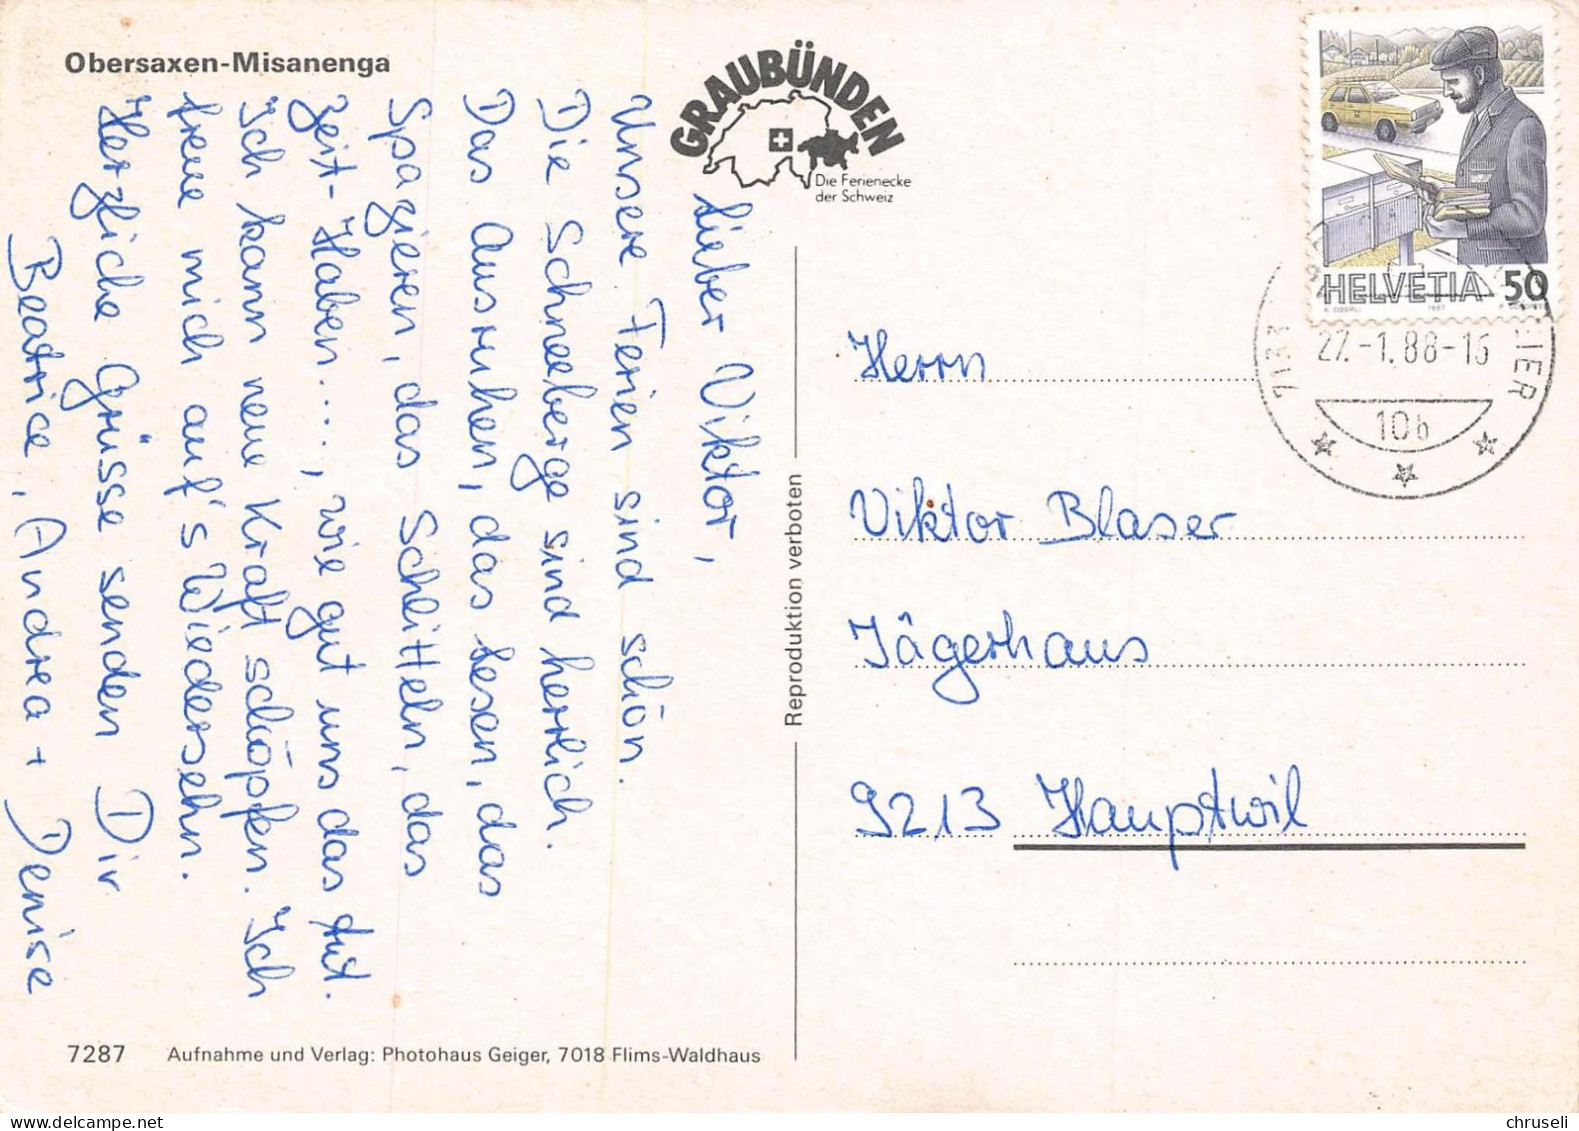 Obersaxen-Misanenga
GRAUBÜNDEN
Die Ferienecke
der Schweiz
Lieber Viktor,
Unsere Ferien sind schön.
Die Schneeberge sind herrlich.
Das Ausruhen, das Lesen, das
Spazieren, das Schlitteln, das
Zeit-Haben...., wie gut uns das tut.
Ich kann neue Kraft schöpfen. Ich
freue mich auf's Wiedersehn.
Herzliche Grüsse senden Dir
Beatrice, Andrea + Denise
7287 Aufnahme und Verlag: Photohaus Geiger, 7018 Flims-Waldhaus
Reproduktion verboten
HELVETIA 50
K. OBERLI 1987
27.-1.88-16
10b
Herrn
Viktor Blaser
Jägerhaus
9213 Hauptwil
chruseli